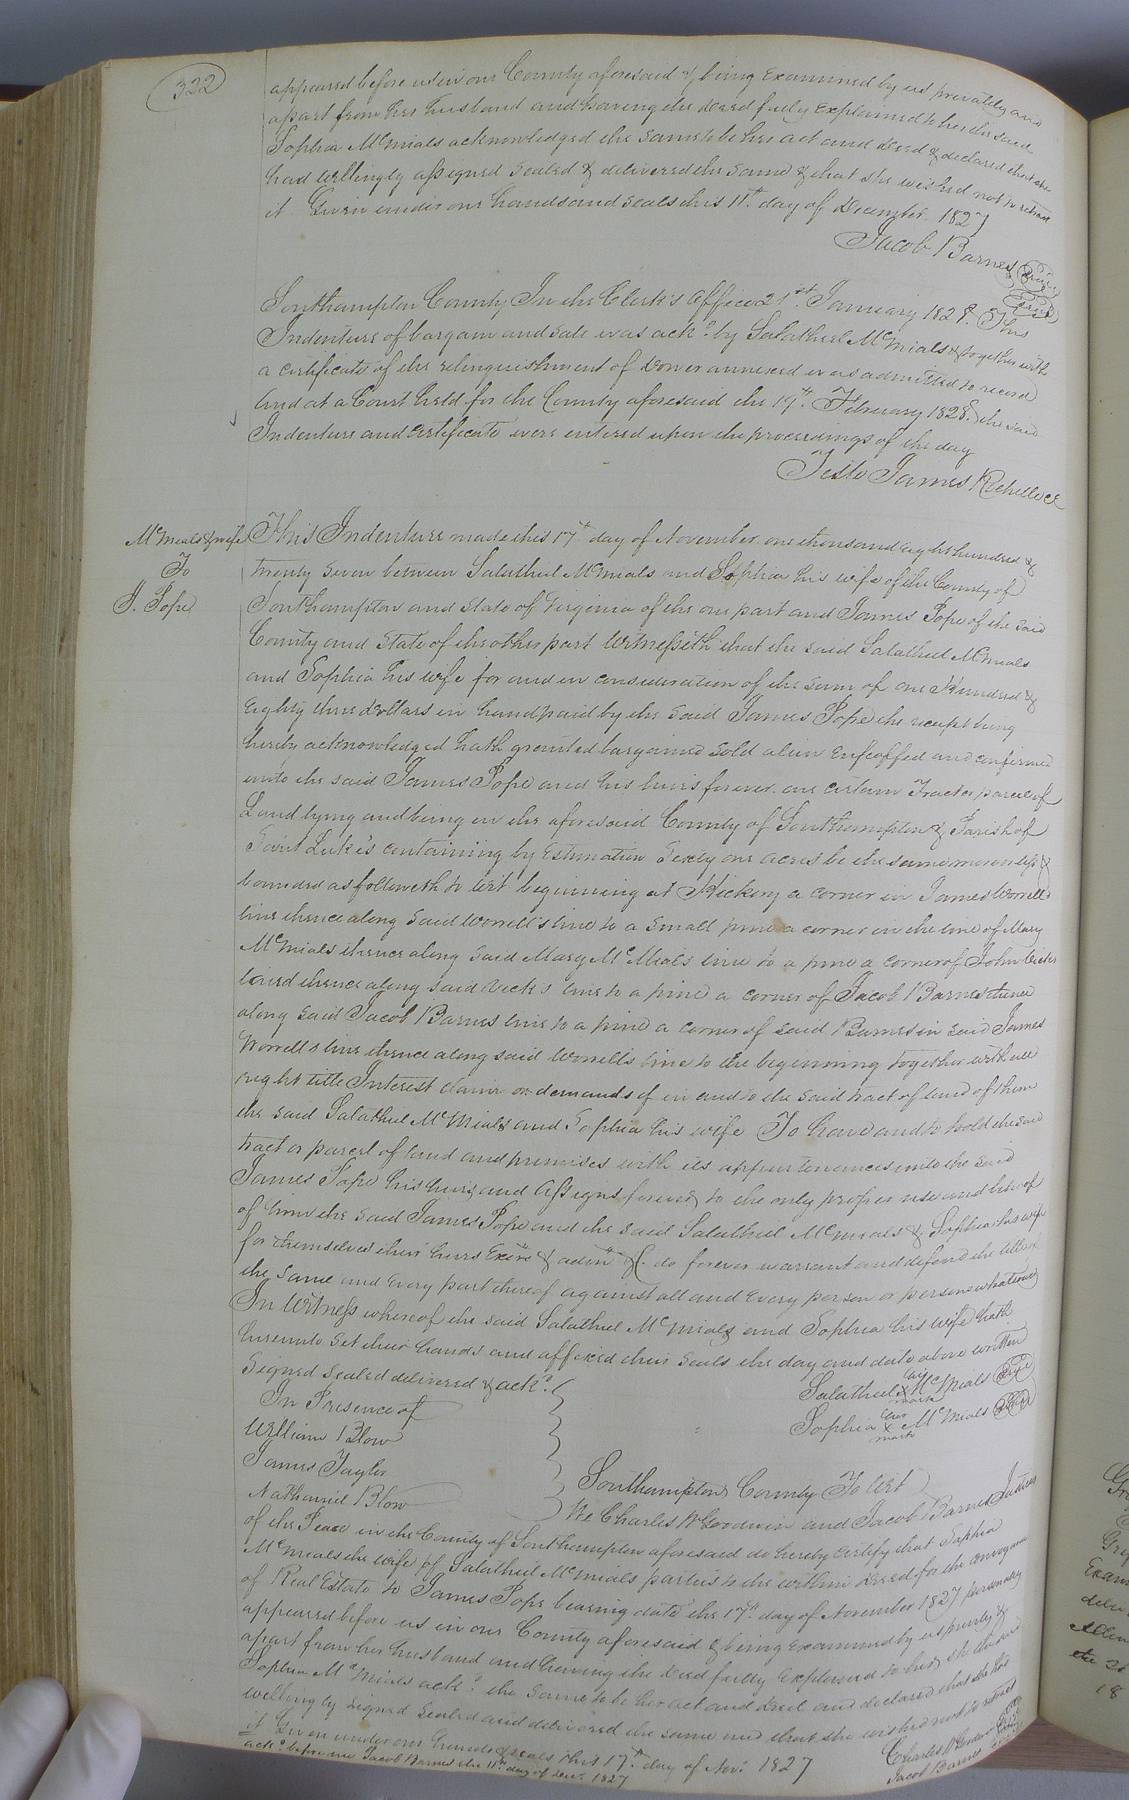 322
appeared before us in our County aforesaid & being Examined by us privately and
apart from her husband and having the deed fully Explained to her the said
Sophia McMials acknowledged the same to be her act and Deed & declared that she
had willingly assigned Sealed & delivered the same & that she wished not to retract
it Given under our hands and seals this 11th day of December 1827
Jacob Barnes Seal
Seal
Southampton County In the Clerk's Office 21st January 1828. This
Indenture of bargain and sale was ackd by Salathiel McMials & together with
a certificate of the relinquishment of Dower annexed was admitted to record
And at a Court held for the County aforesaid the 19th February 1828. the said
Indenture and Certificate were entered upon the proceedings of the day
Teste James Rochelle CC
McMials & wife
To
J. Pope
This Indenture made this 17th day of November one thousand eight hundred &
twenty Seven between Salathiel McMials and Sophia his wife of the County of
Southampton and State of Virginia of the one part and James Pope of the said
County and State of the other part Witnesseth that the said Salathiel McMials
and Sophia his wife for and in consideration of the sum of one Hundred &
Eighty three dollars in hand paid by the said James Pope the receipt being
hereby acknowledged hath granted bargained sold alien Enfeoffed and confirmed
unto the said James Pope and his heirs forever one certain Tract or parcel of
Land lying and being in the aforesaid County of Southampton & Parish of
Saint Luke's containing by Estimation Sixty one acres be the same more or less &
bounded as followeth to wit beginning at Hickory a corner in James Worrell's
line thence along said Worrell's line to a small pine a corner in the line of Mary
McMials thence along said Mary McMials line to a pine a corner of John Vicks
land thence along said Vick's line to a pine a corner of Jacob Barnes thence
along said Jacob Barnes line to a pine a corner of said Barnes in said James
Worrell's line thence along said Worrell's line to the beginning together with all
right title Interest claim or demands of in and to the said tract of land of them
the said Salathiel McMials and Sophia his wife To have and to hold the said
tract or parcel of land and premises with its appurtenances unto the said
James Pope his heirs and Assigns forever to the only proper use and behoof
of him the said James Pope and the said Salathiel McMials & Sophia his wife
for themselves their heirs Exors & admrs &c. do forever warrant and defend the title of
the same and Every part thereof against all and Every person or persons whatsoever
In Witness whereof the said Salathiel McMials and Sophia his wife hath
hereunto set their hands and affixed their seals the day and date above written
Signed Sealed delivered & ackd
Salathiel his X mark McMials Seal
In Presence of
Sophia her X mark McMials Seal
William Blow
James Taylor
Nathaniel Blow
Southampton County To Wit
We Charles W Goodwin and Jacob Barnes Justices
of the Peace in the County of Southampton aforesaid do hereby certify that Sophia
McMials the wife of Salathiel McMials parties to the within Deed for the conveyance
of Real Estate to James Pope bearing date the 17th day of November 1827 personally
appeared before us in our County aforesaid & being Examined by us privily &
apart from her husband and having the deed fully Explained to her she the said
Sophia McMials ackd the same to be her act and deed and declared that she had
willingly signed Sealed and delivered the same and that she wished not to retract
it Given under our hands & seals this 17th day of Novr 1827
Charles W Goodwin
ackd before me Jacob Barnes the 11th day of Decr 1827
Jacob Barnes